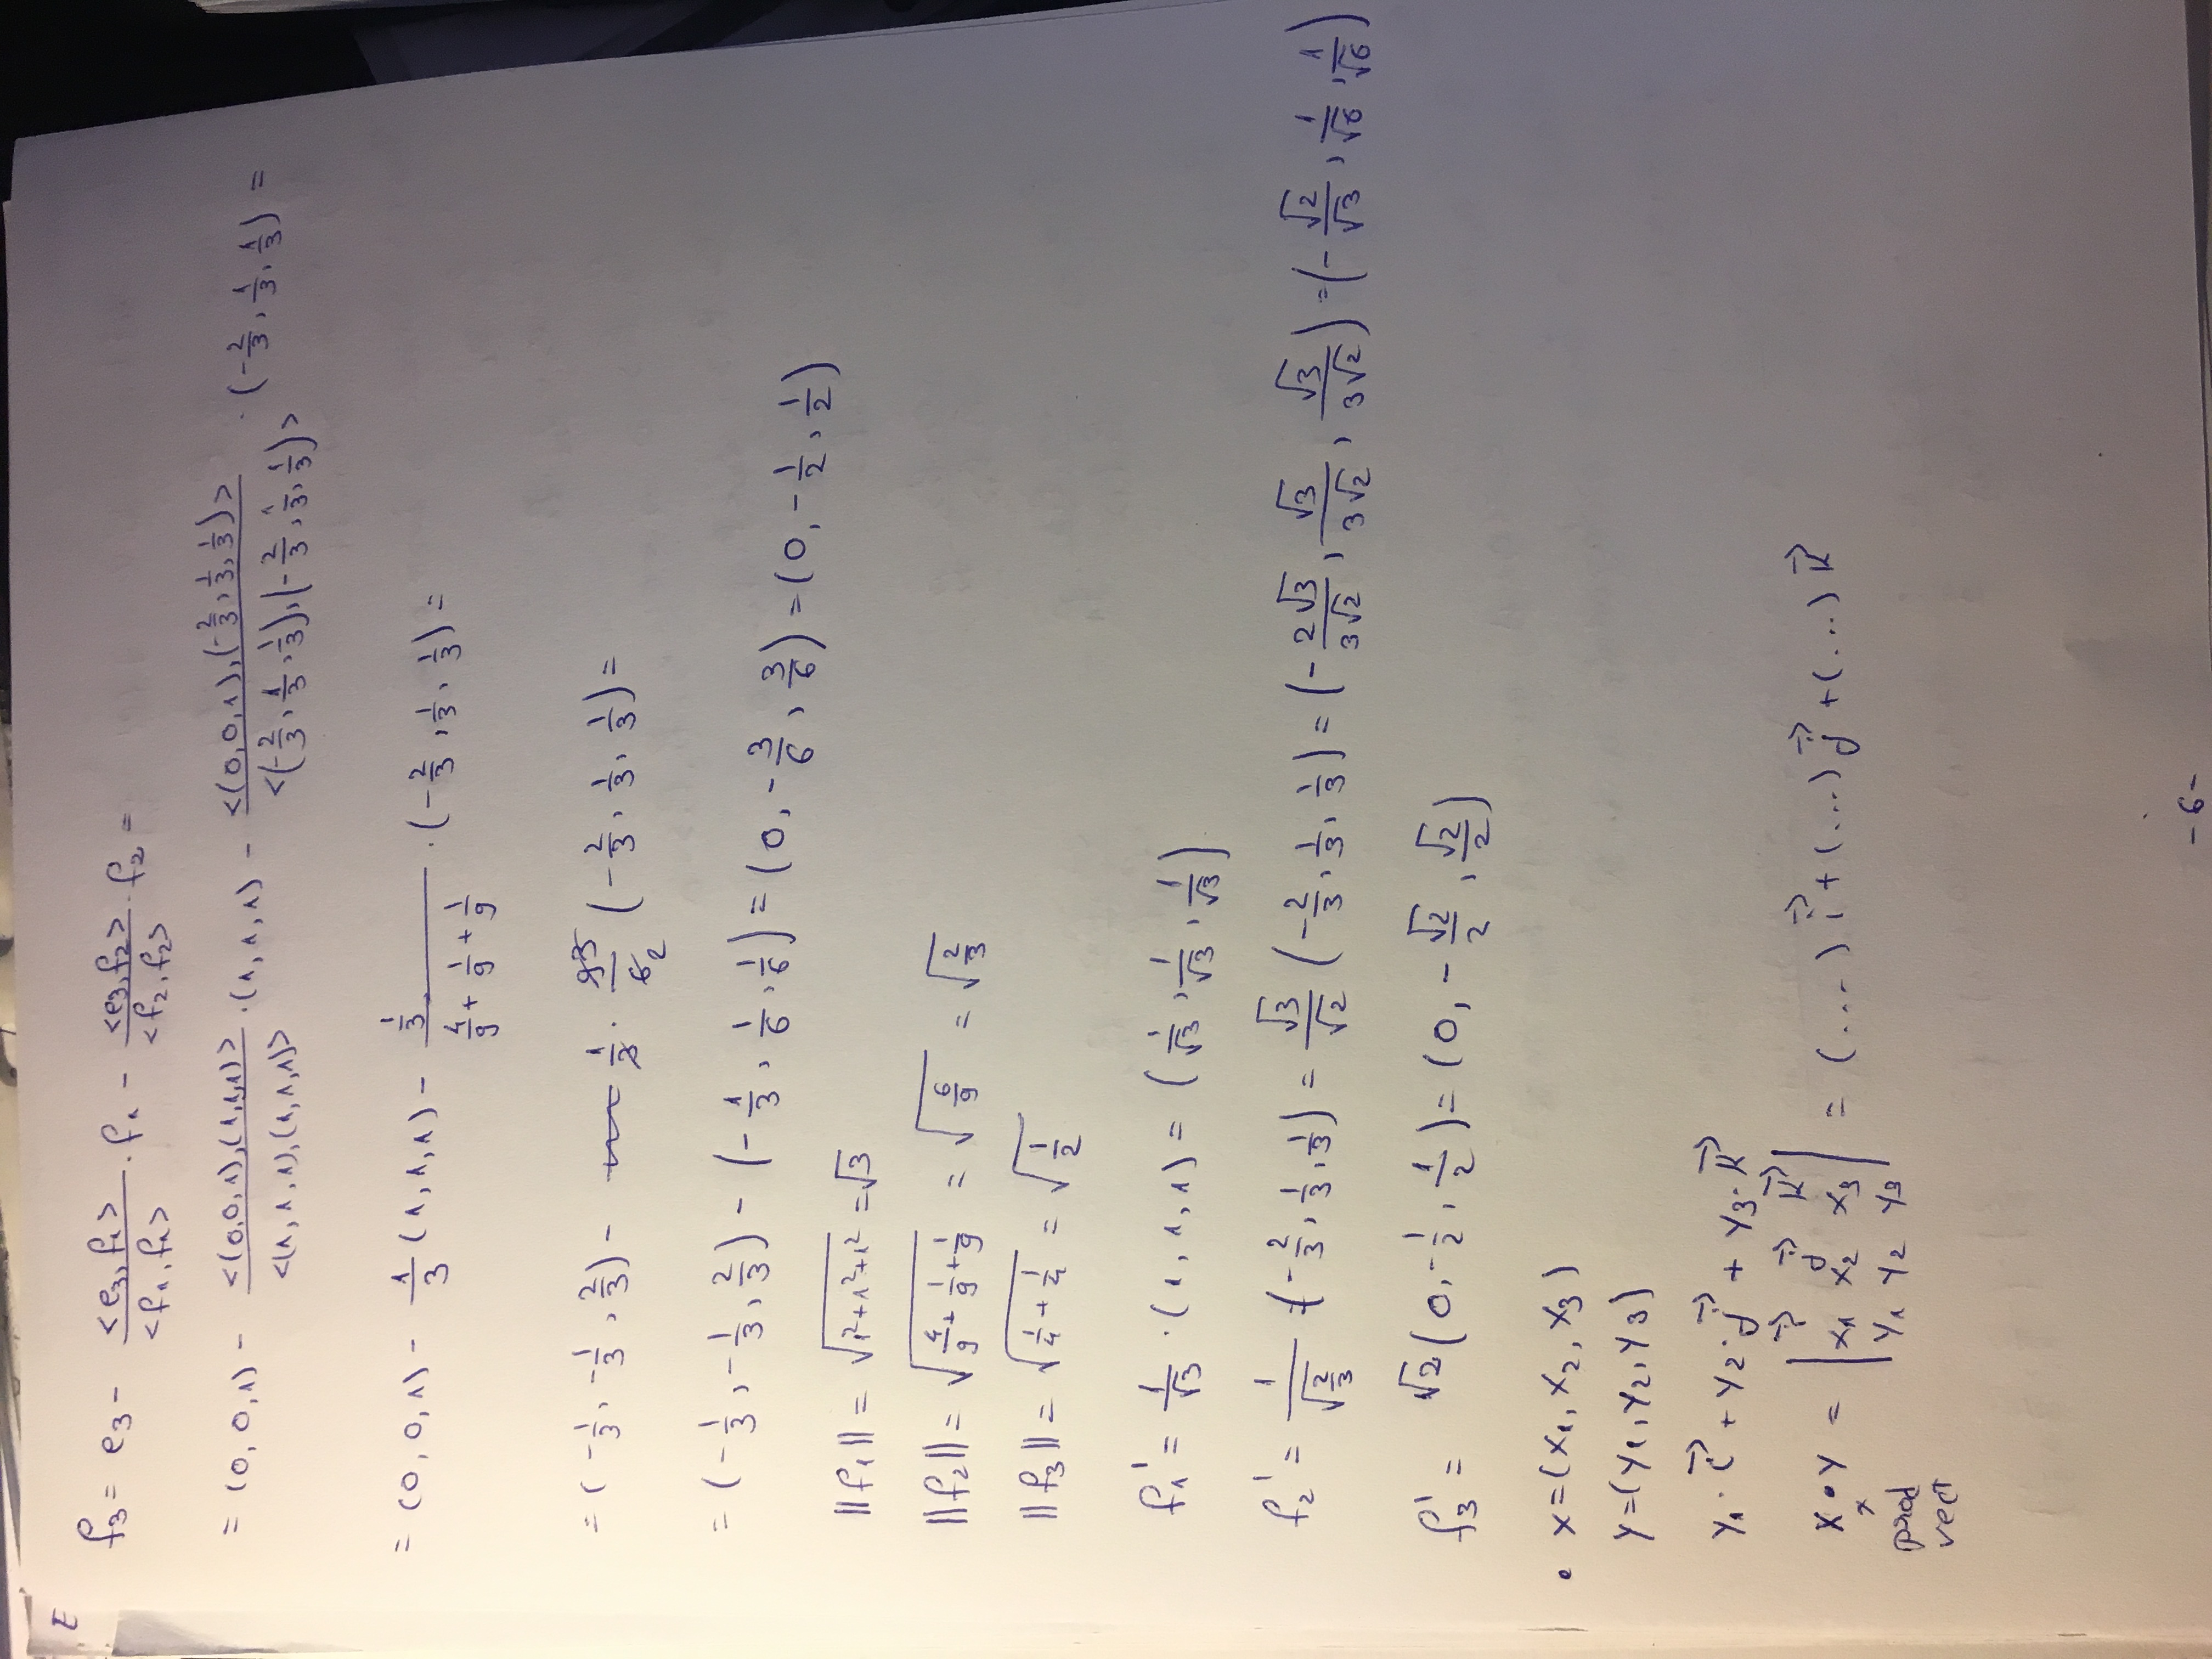 E
f₃ = e₃ - <e₃, f₁> / <f₁, f₁> · f₁ - <e₃, f₂> / <f₂, f₂> · f₂ =
= (0, 0, 1) - <(0,0,1), (1,1,1)> / <(1,1,1), (1,1,1)> · (1, 1, 1) - <(0,0,1), (-2/3, 1/3, 1/3)> / <(-2/3, 1/3, 1/3), (-2/3, 1/3, 1/3)> · (-2/3, 1/3, 1/3) =
= (0, 0, 1) - 1/3 (1, 1, 1) - (1/3) / (4/9 + 1/9 + 1/9) · (-2/3, 1/3, 1/3) =
= (-1/3, -1/3, 2/3) - 1/3 · 9 3/6 2 (-2/3, 1/3, 1/3) =
= (-1/3, -1/3, 2/3) - (-1/3, 1/6, 1/6) = (0, -3/6, 3/6) = (0, -1/2, 1/2)
||f₁|| = √(1²+1²+1²) = √3
||f₂|| = √(4/9 + 1/9 + 1/9) = √(6/9) = √(2/3)
||f₃|| = √(1/4 + 1/4) = √(1/2)
f₁' = 1/√3 · (1, 1, 1) = (1/√3, 1/√3, 1/√3)
f₂' = 1/√(2/3) · (-2/3, 1/3, 1/3) = √3/√2 (-2/3, 1/3, 1/3) = (-2√3/3√2, √3/3√2, √3/3√2) = (-√2/√3, 1/√6, 1/√6)
f₃' = √2 (0, -1/2, 1/2) = (0, -√2/2, √2/2)
• x = (x₁, x₂, x₃)
y = (y₁, y₂, y₃)
y₁ · i⃗ + y₂ · j⃗ + y₃ · k⃗
x • y = | i⃗ j⃗ k⃗ | = (...) i⃗ + (...) j⃗ + (...) k⃗
x | x₁ x₂ x₃ |
| y₁ y₂ y₃ |
prod
vect
- 6 -